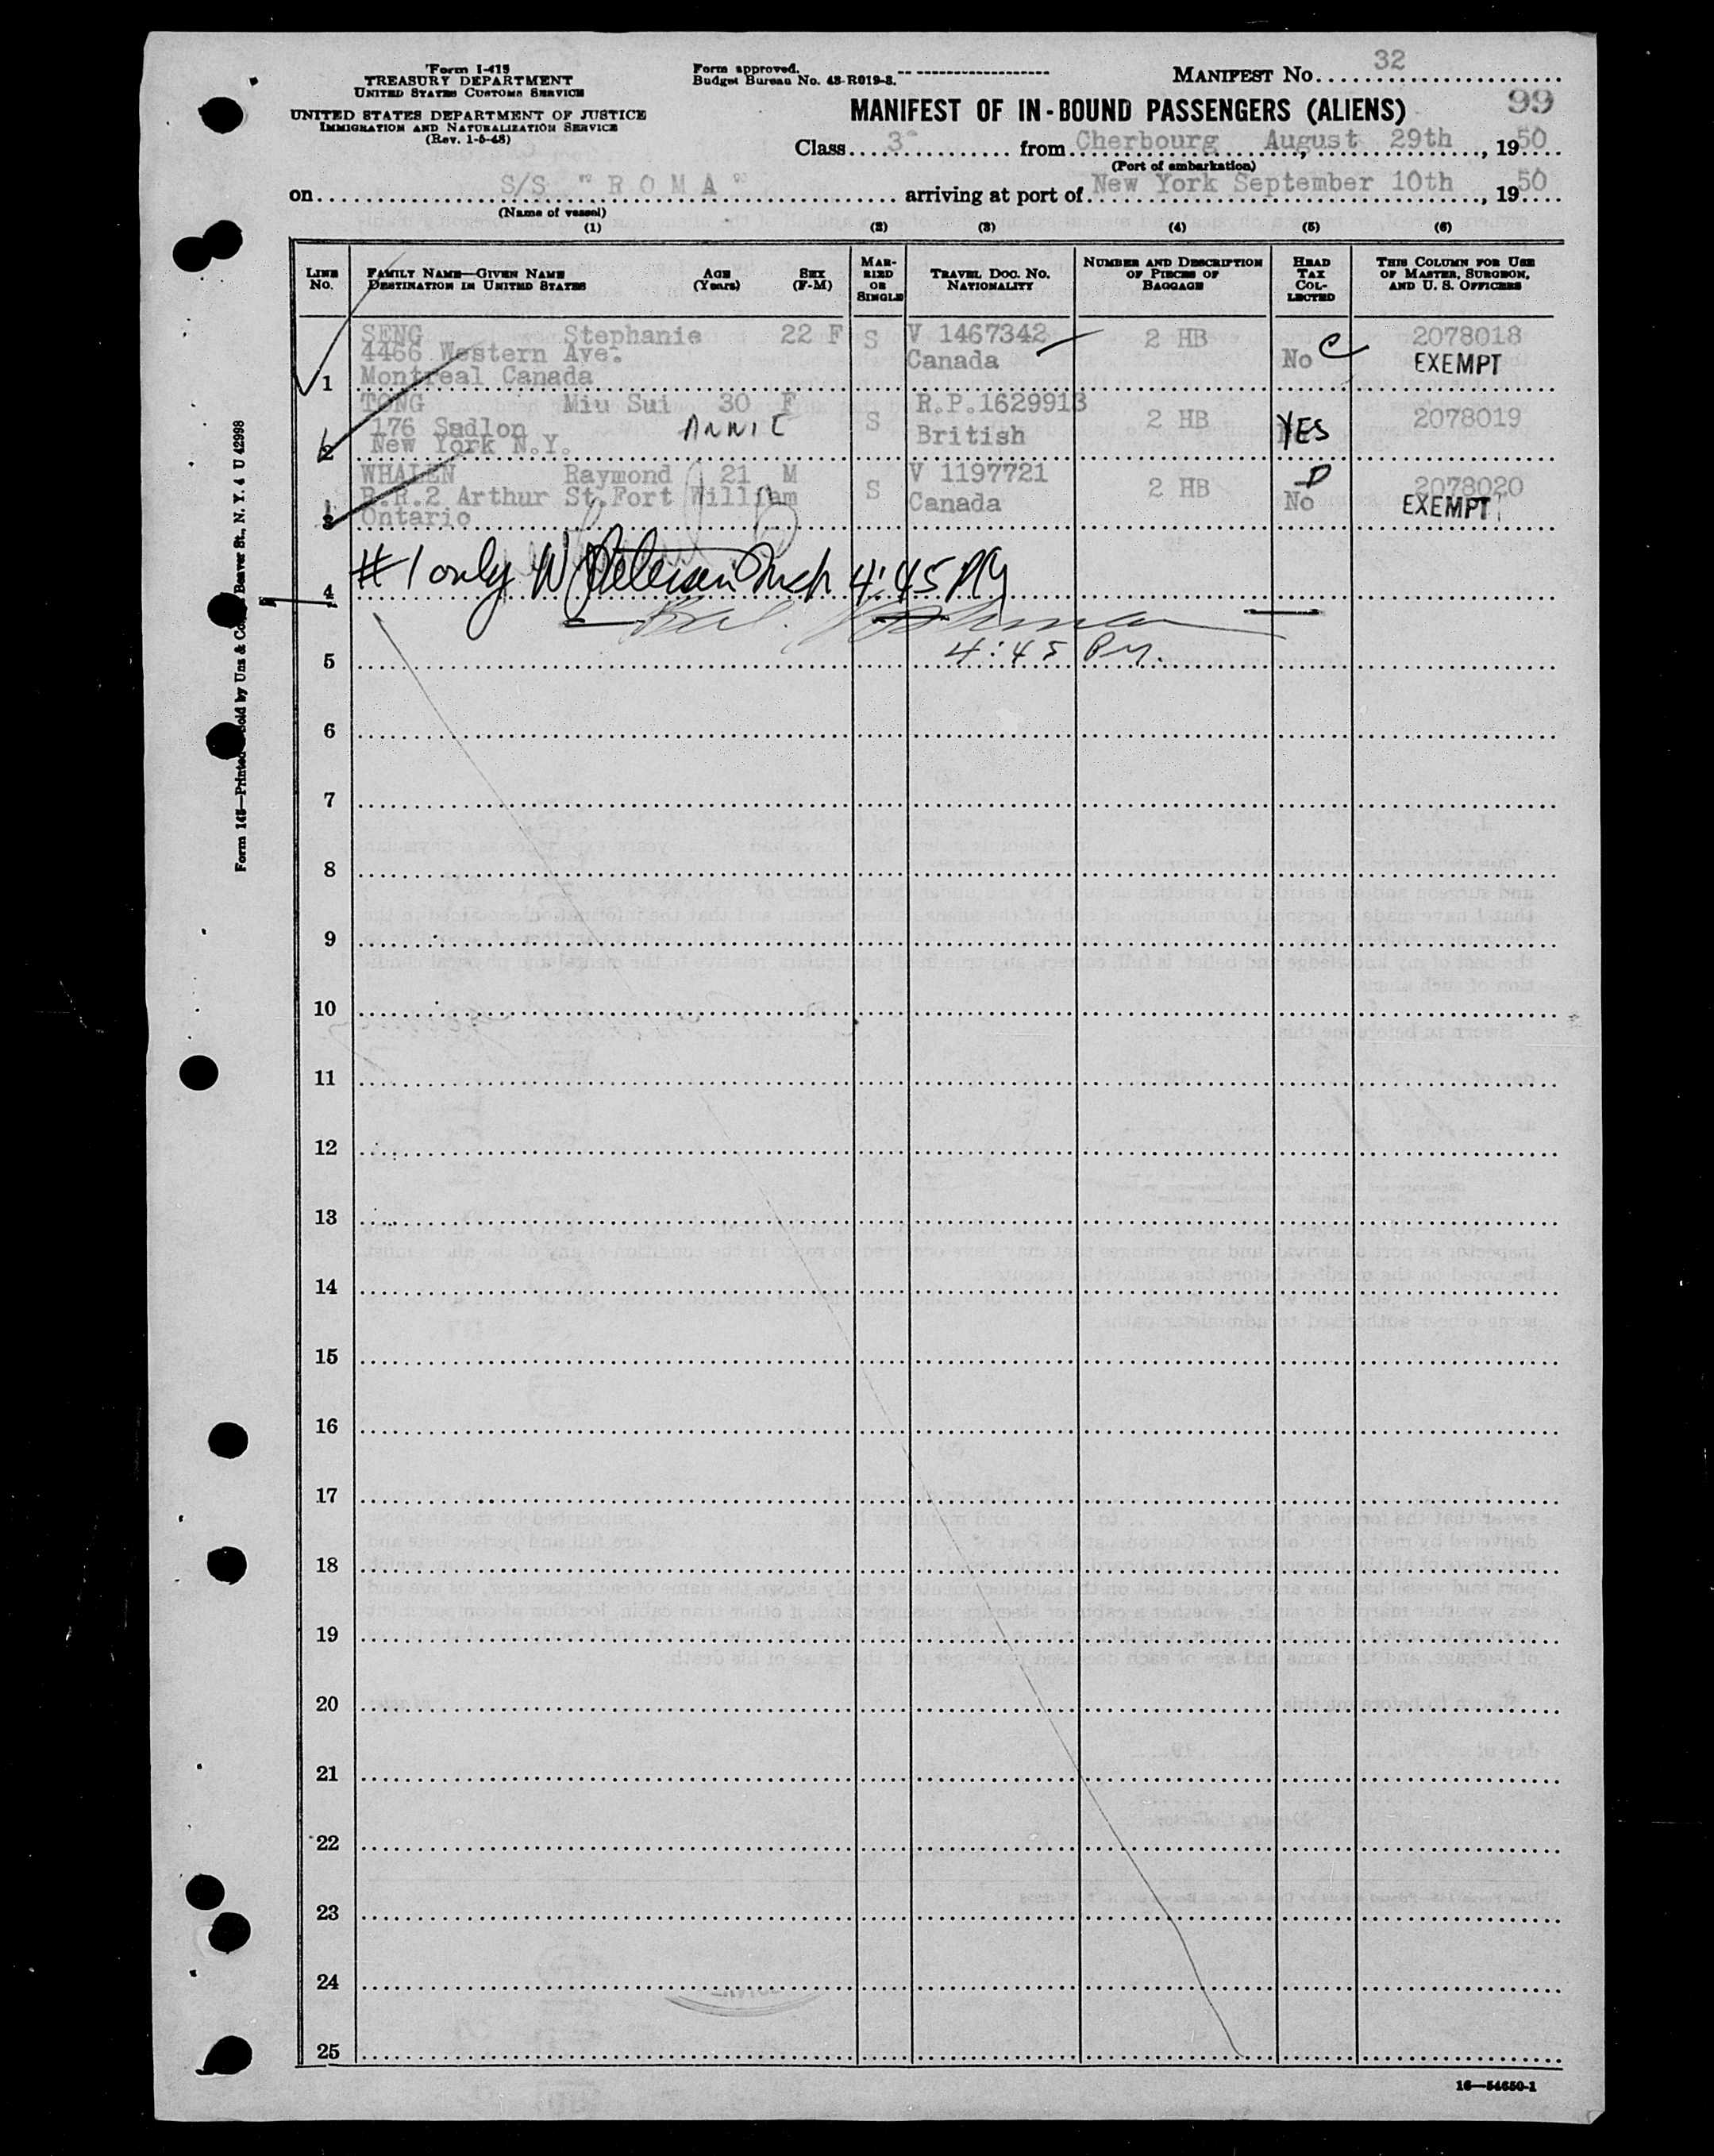 Form I-415
TREASURY DEPARTMENT
UNITED STATES CUSTOMS SERVICE
UNITED STATES DEPARTMENT OF JUSTICE
IMMIGRATION AND NATURALIZATION SERVICE
(Rev. 1-5-48)
Form approved.
Budget Bureau No. 43-R019-3.
MANIFEST No. 32
99
MANIFEST OF IN-BOUND PASSENGERS (ALIENS)
Class 3ª from Cherbourg August 29th, 1950
(Port of embarkation)
on S/S "ROMA" arriving at port of New York September 10th, 1950
(Name of vessel)
(1) (2) (3) (4) (5) (6)
LINE No. FAMILY NAME—GIVEN NAME DESTINATION IN UNITED STATES AGE (Years) SEX (F-M) MARRIED OR SINGLE TRAVEL DOC. NO. NATIONALITY NUMBER AND DESCRIPTION OF PIECES OF BAGGAGE HEAD TAX COLLECTED THIS COLUMN FOR USE OF MASTER, SURGEON, AND U. S. OFFICERS
SENG Stephanie 22 F S V 1467342 2 HB 2078018
4466 Western Ave. Canada No C EXEMPT
1 Montreal Canada
TONG Miu Sui 30 F S R.P.1629913 2 HB 2078019
176 Sadlon ANNIE British YES
2 New York N.Y.
WHALEN Raymond 21 M S V 1197721 2 HB 2078020
R.R.2 Arthur St.Fort William Canada No EXEMPT
3 Ontario
#1 only W Petersen 4:45 PM
4
4:45 PM.
5
6
7
8
9
10
11
12
13
14
15
16
17
18
19
20
21
22
23
24
25
16—54650-1
Beaver St., N. Y. 4 U 42998